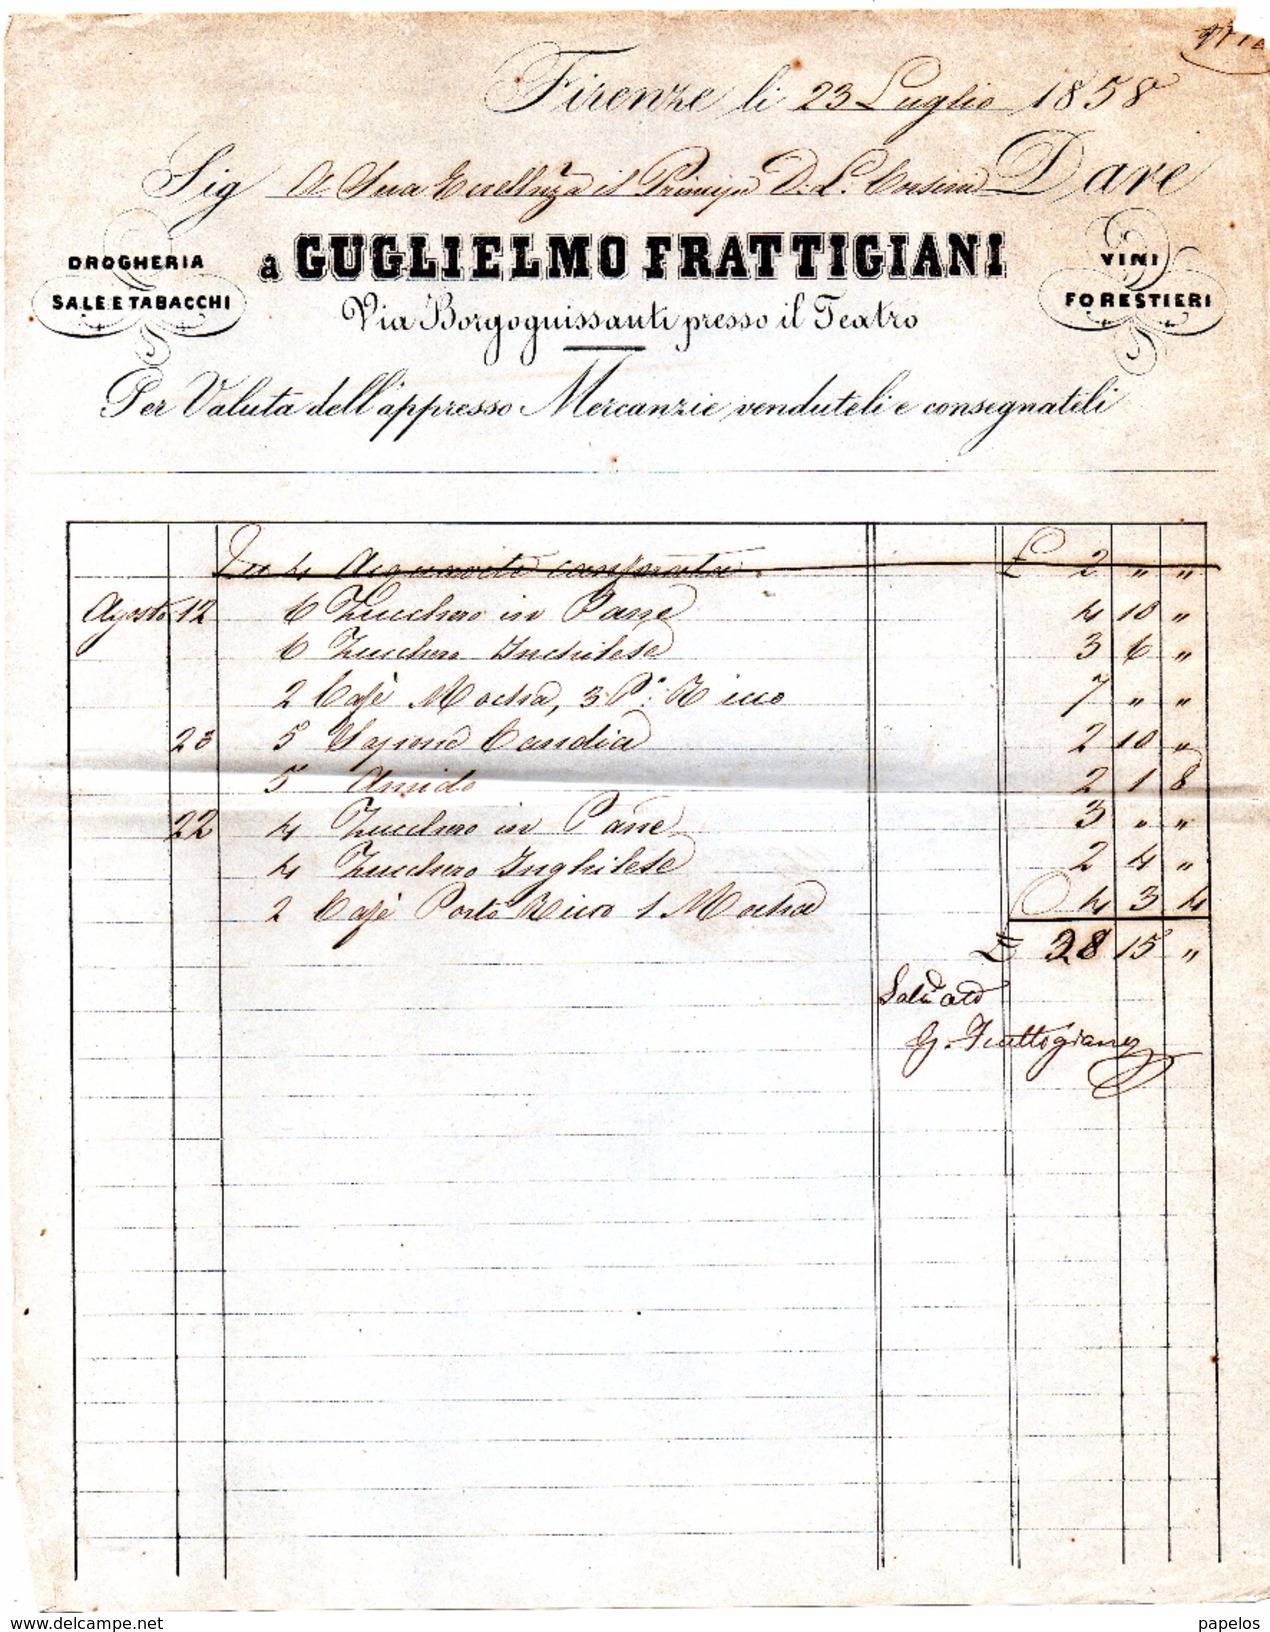 Firenze li 23 Luglio 1858
Sig A Sua Eccellenza il Principe D. L. Corsini Dare
DROGHERIA
SALE E TABACCHI
a GUGLIELMO FRATTIGIANI
VINI
FORESTIERI
Via Borgognissanti presso il Teatro
Per Valuta dell'appresso Mercanzie venduteli e consegnatili
4 Acquavite canforata £ 2 " "
Agosto 12 6 Zucchero in Pane 4 10 "
6 Zucchero Inghilese 3 6 "
2 Cafè Mocha, 3 P.º Ricco 7 " "
23 5 Sapone Candia 2 10 "
5 Amido 2 1 8
22 4 Zucchero in Pane 3 " "
4 Zucchero Inghilese 2 4 "
2 Cafè Porto Ricco 1 Mocha 4 3 4
£ 28 15 "
Saldato
G. Frattigiani
www.delcampe.net
papelos